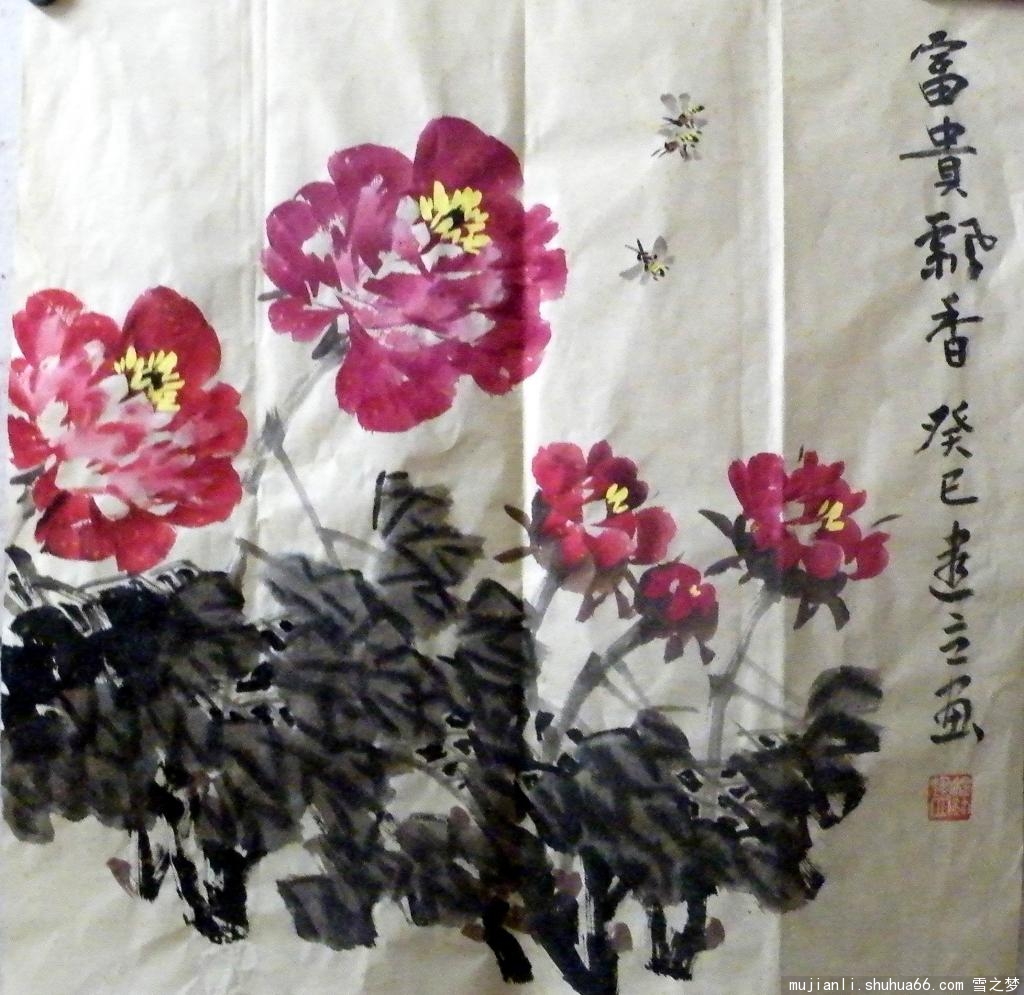 富貴飄香 癸巳建立画
mujianli.shuhua66.com 雪之梦